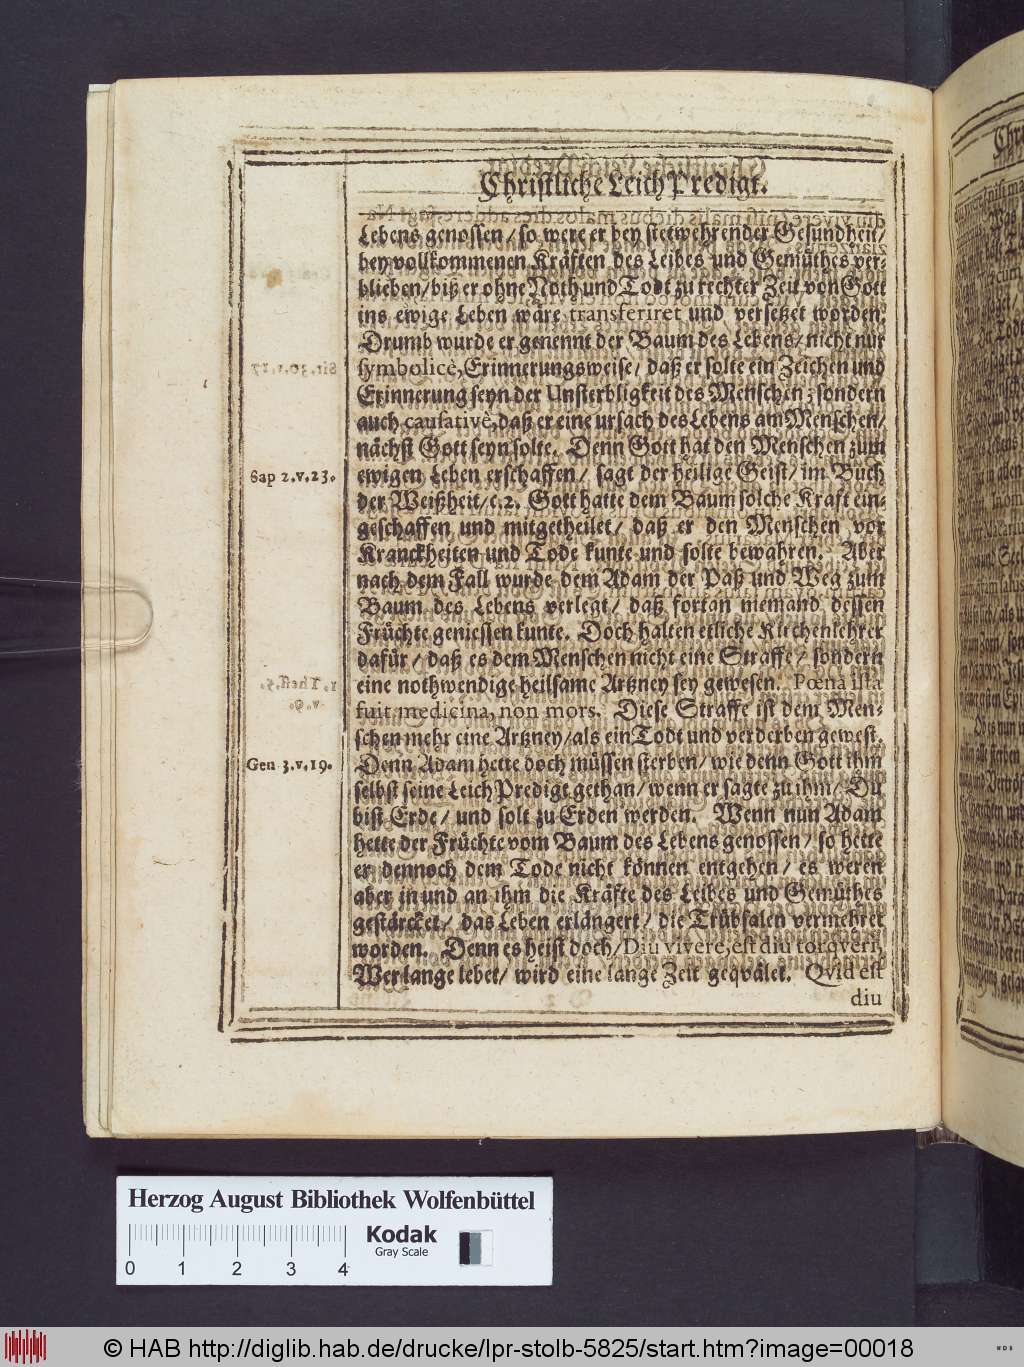 Christliche Leich Predigt.
Lebens genossen / so were er bey stetwehrender Gesundheit /
bey vollkommenen Kräfften des Leibes und Gemüthes ver-
blieben / biß er ohne Noth und Todt zu rechter Zeit von Gott
ins ewige Leben wäre transferiret und versetzet worden.
Drumb wurde er genennt der Baum des Lebens / nicht nur
symbolicè, Erinnerungsweise / daß er solte ein Zeichen und
Erinnerung seyn der Unsterbligkeit des Menschen; sondern
auch causativè, daß er eine ursach des Lebens am Menschen /
nächst Gott seyn solte. Denn Gott hat den Menschen zum
Sap 2. v. 23.
ewigen Leben erschaffen / sagt der heilige Geist / im Buch
der Weißheit / c. 2. Gott hatte dem Baum solche Krafft ein-
geschaffen und mitgetheilet / daß er den Menschen vor
Kranckheiten und Tode kunte und solte bewahren. Aber
nach dem Fall wurde dem Adam der Paß und Weg zum
Baum des Lebens verlegt / daß fortan niemand dessen
Früchte geniessen kunte. Doch halten etliche Kirchenlehrer
dafür / daß es dem Menschen nicht eine Straffe / sondern
eine nothwendige heilsame Artzney sey gewesen. Pœna ista
fuit medicina, non mors. Diese Straffe ist dem Men-
schen mehr eine Artzney / als ein Todt und verderben gewest.
Gen 3. v. 19.
Denn Adam hette doch müssen sterben / wie denn Gott ihm
selbst seine Leich Predigt gethan / wenn er sagte zu ihm / Du
bist Erde / und solt zu Erden werden. Wenn nun Adam
hette der Früchte vom Baum des Lebens genossen / so hette
er dennoch dem Tode nicht können entgehen / es weren
aber in und an ihm die Kräfte des Leibes und Gemüthes
gestärcket / das Leben erlängert / die Trübsalen vermehret
worden. Denn es heist doch / Diu vivere, est diu torqveri,
Wer lange lebet / wird eine lange Zeit geqvälet. Qvid est
diu
Herzog August Bibliothek Wolfenbüttel
Kodak
Gray Scale
0 1 2 3 4
© HAB http://diglib.hab.de/drucke/lpr-stolb-5825/start.htm?image=00018